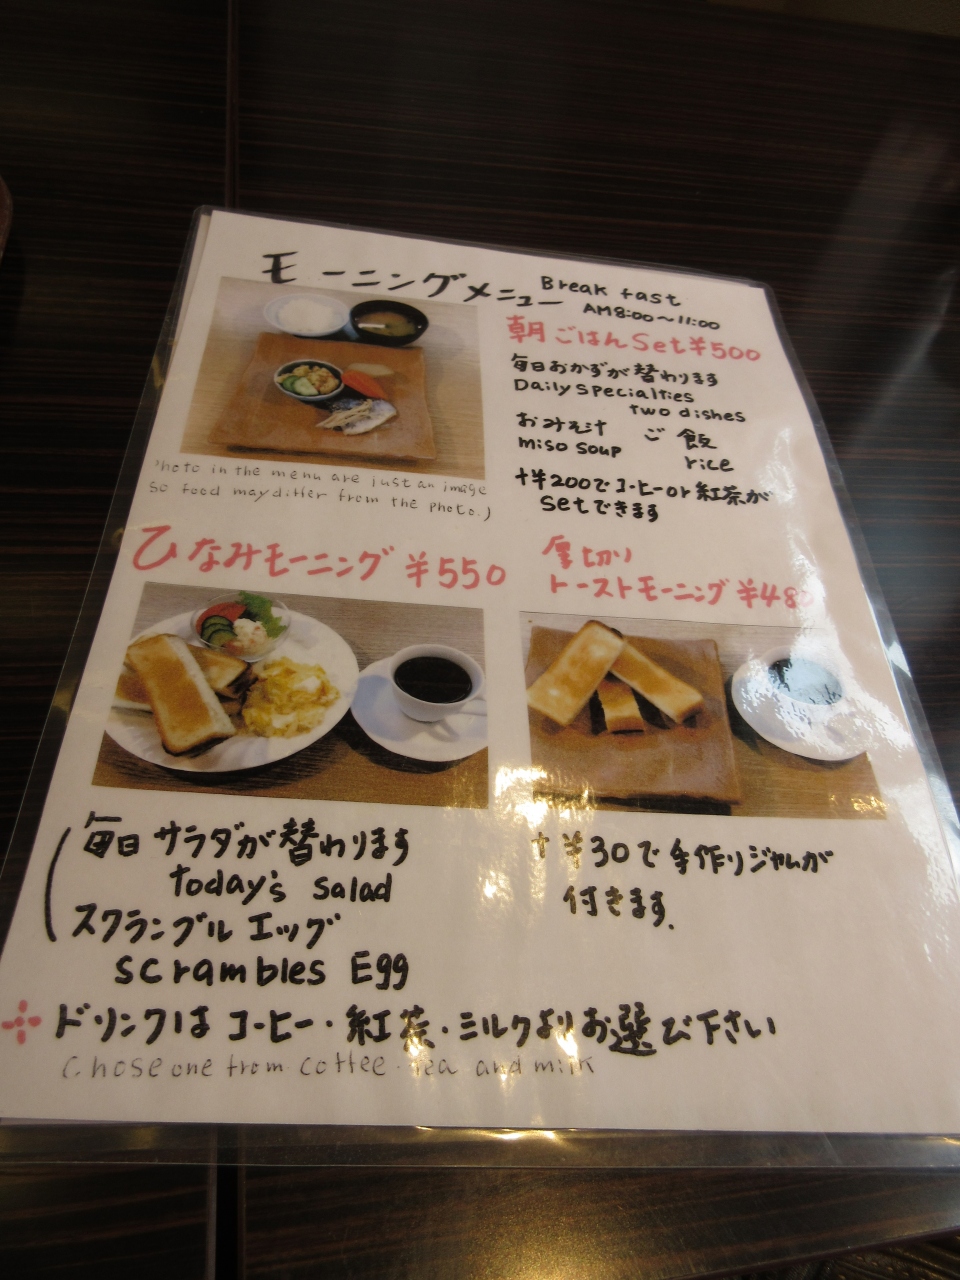 モーニングメニュー Break fast
AM8:00〜11:00
朝ごはんSet¥500
毎日おかずが替わります
Daily specialties
two dishes
おみそ汁 ご飯
miso soup rice
+¥200でコーヒーor紅茶が
setできます
Photo in the menu are just an image
so food may differ from the photo.)
ひなみモーニング ¥550
厚切り
トーストモーニング ¥48
毎日サラダが替わります
today's salad
スクランブルエッグ
scrambles Egg
+¥30で手作りジャムが
付きます.
+ドリンクはコーヒー・紅茶・ミルクよりお選び下さい
Chose one from coffee・tea and milk